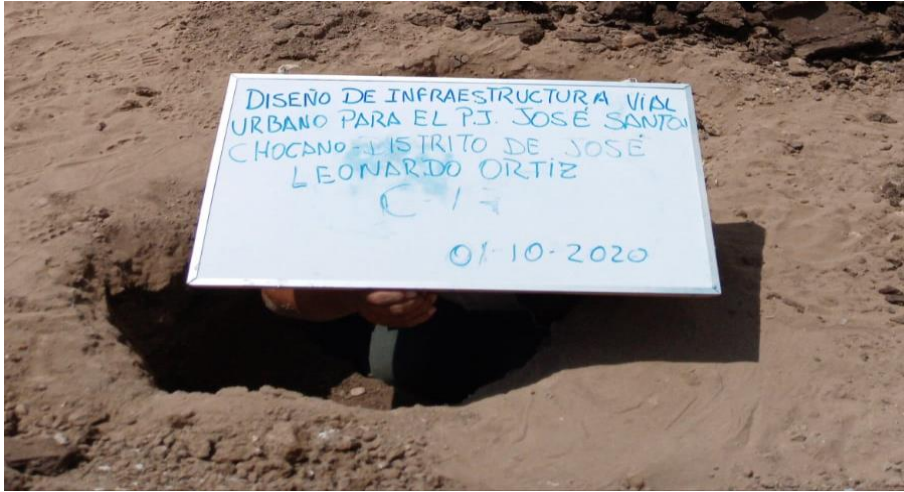 DISEÑO DE INFRAESTRUCTURA VIAL
URBANO PARA EL P.J. JOSÉ SANTOS
CHOCANO-DISTRITO DE JOSÉ
LEONARDO ORTIZ
01-10-2020